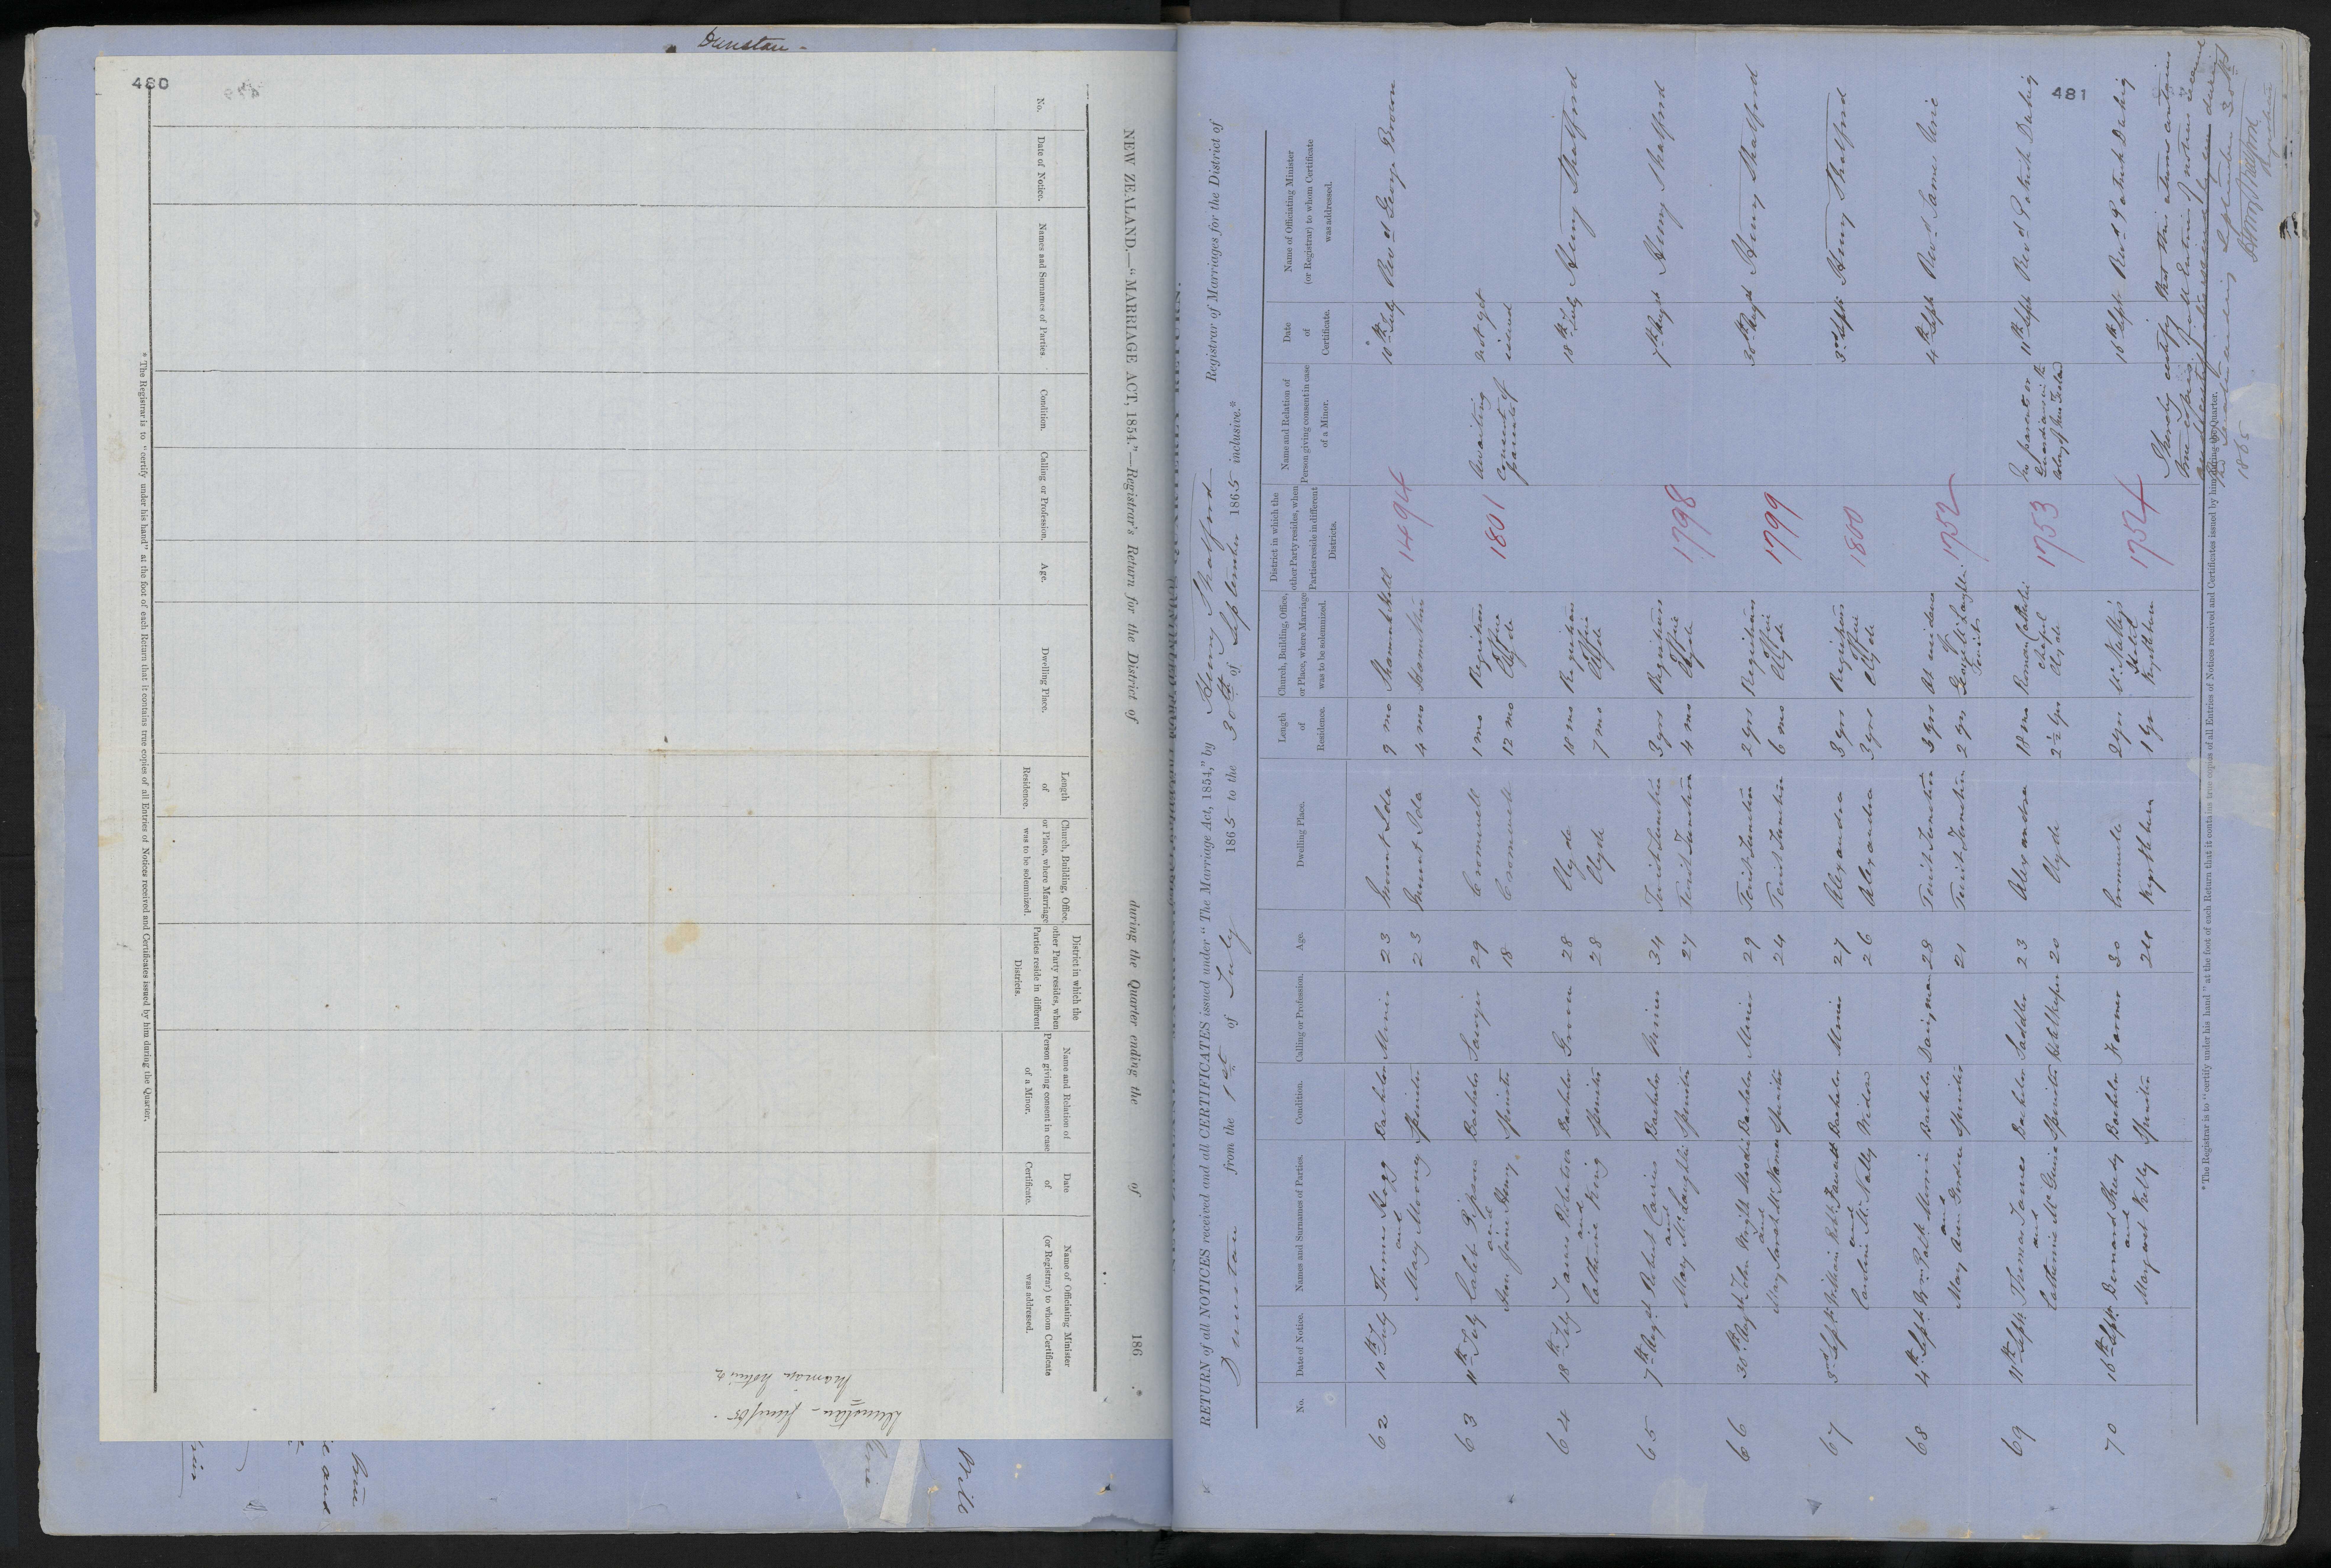 Dunstan -
480
NEW ZEALAND.—“MARRIAGE ACT, 1854.”—Registrar's Return for the District of during the Quarter ending the of 186 .
No.
Date of Notice.
Names and Surnames of Parties.
Condition.
Calling or Profession.
Age.
Dwelling Place.
Length of Residence.
Church, Building, Office, or Place, where Marriage was to be solemnized.
District in which the other Party resides, when Parties reside in different Districts.
Name and Relation of Person giving consent in case of a Minor.
Date of Certificate.
Name of Officiating Minister (or Registrar) to whom Certificate was addressed.
* The Registrar is to “certify under his hand” at the foot of each Return that it contains true copies of all Entries of Notices received and Certificates issued by him during the Quarter.
481
RETURN of all NOTICES received and all CERTIFICATES issued under “The Marriage Act, 1854,” by Henry Stratford Registrar of Marriages for the District of
Dunstan from the 1st of July 1865 to the 30th of September 1865 inclusive.*
No.
Date of Notice.
Names and Surnames of Parties.
Condition.
Calling or Profession.
Age.
Dwelling Place.
Length of Residence.
Church, Building, Office, or Place, where Marriage was to be solemnized.
District in which the other Party resides, when Parties reside in different Districts.
Name and Relation of Person giving consent in case of a Minor.
Date of Certificate.
Name of Officiating Minister (or Registrar) to whom Certificate was addressed.
62 10th July Thomas Hogg Bachelor Miner 23 Mount Ida 9 mo 1494 10th July Revd George Brown
and
Mary Mooney Spinster 23 Mount Ida 4 mo Hamilton
63 11th July Caleb Bachelor Sawyer 29 Cromwell 1 mo Registrars 1801 Awaiting not yet
and Office consent of issued
Ann Jane Henry Spinster 18 Cromwell 12 mo Clyde parents
64 18th July James Robertson Bachelor Groom 28 Clyde 18 mo Registrars 18th July Henry Stratford
and Office
Catherine King Spinster 28 Clyde 7 mo Clyde
65 7th Augst Robert Bachelor Miner 34 3 yrs Registrars 1798 7th Augst Henry Stratford
and Office
Mary McLaughlin Spinster 27 4 mo Clyde
66 30th Augst John Wright Bachelor Miner 29 2 yrs Registrars 1799 30th Augst Henry Stratford
and Office
Mary Sarah McNamara Spinster 24 6 mo Clyde
67 3rd Septr William Robt Fawcett Bachelor Miner 27 Alexandra 3 yrs Registrars 1800 3rd Septr Henry Stratford
and Office
Caroline McNally Widow 26 Alexandra 3 yrs Clyde
68 4th Septr Wm Bachelor Dairyman 28 3 yrs At residence 1752 4th Septr Revd James
and of
Mary Ann Gordon Spinster 21 2 yrs George
69 11th Septr Thomas James Bachelor Saddler 23 Alexandra 18 mo Roman Catholic 1753 No parents or 11th Septr Revd Patrick
and Chapel Guardians in the
Catherine McGuire Spinster Hotelkeeper 20 Clyde 2½ yrs Clyde Colony of New Zealand
70 16th Septr Bernard Sheehy Bachelor Farmer 30 Cromwell 2 yrs Hotel 1754 16th Septr Revd Patrick
and
Margaret Kelly Spinster 1 yr
I hereby certify that this return contains
true copies of all Entries of notices received
and certificates issued by me during
the quarter ending September 30th
1865
Henry Stratford
Registrar
* The Registrar is to “certify under his hand” at the foot of each Return that it contains true copies of all Entries of Notices received and Certificates issued by him during the Quarter.